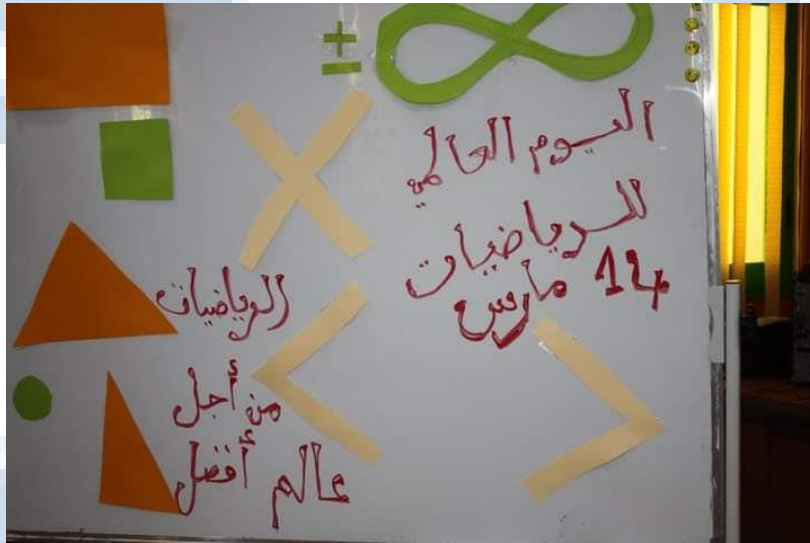 اليوم العالمي
للرياضيات
14 مارس
الرياضيات
من أجل
عالم أفضل